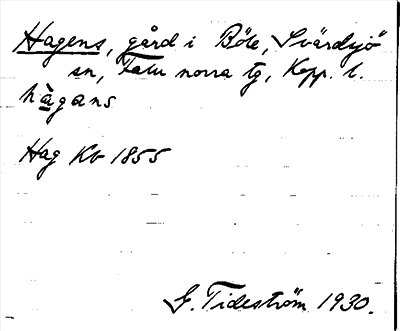 Hagens, gård i Böle, Svärdsjö
sn, Falu norra tg, Kopp. l.
hàgans
Hag Kb 1855
G. Tideström 1930.